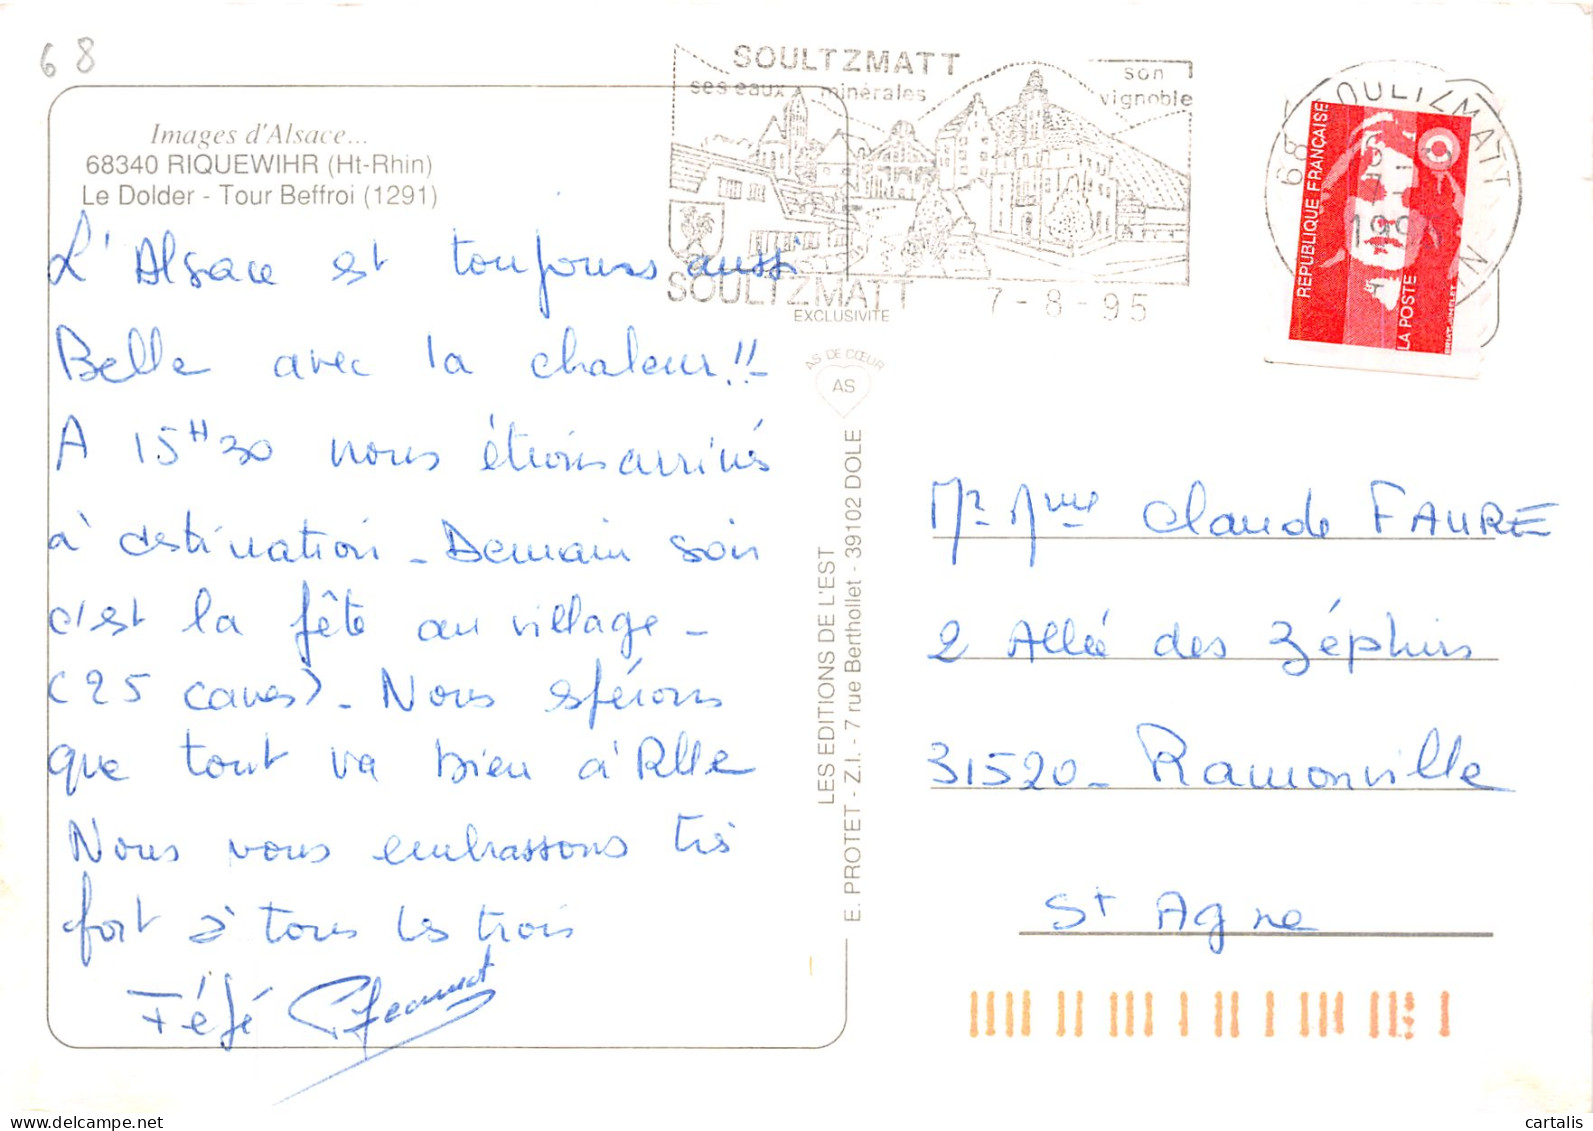 68
Images d'Alsace...
68340 RIQUEWIHR (Ht-Rhin)
Le Dolder - Tour Beffroi (1291)
L'Alsace est toujours aussi
Belle avec la chaleur!!
A 15H30 nous étions arrivés
à destination - Demain soir
c'est la fête au village -
(25 caves) - Nous espérons
que tout va bien à Rlle
Nous vous embrassons très
fort à tous les trois
Féfé Jeannot
SOULTZMATT
ses eaux minérales
son vignoble
SOULTZMATT
7-8-95
EXCLUSIVITE
AS DE CŒUR
AS
LES EDITIONS DE L'EST
E. PROTET - Z.I. - 7 rue Berthollet - 39102 DOLE
68 SOULTZMATT
1995
REPUBLIQUE FRANÇAISE
LA POSTE
Mr Mme Claude FAURE
2 Allée des Zéphirs
31520 - Ramonville
St Agne
cartalis